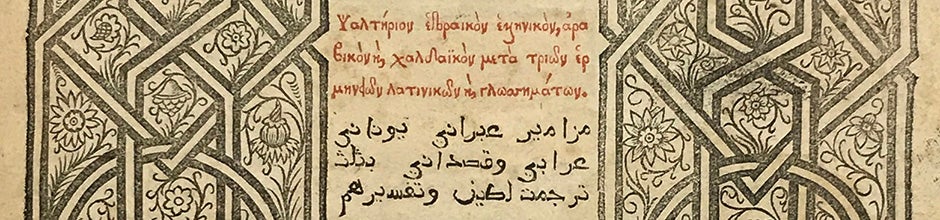 Ψαλτήριον ἑβραικὸν ἑληνικὸν, ἀρα
βικὸν ϗ, χαλδαϊκὸν μετὰ τριῶν ἑρ
μηνειῶν λατινικῶν ϗ, γλωσημάτων.
مزامير عبراني يوناني
عرابي وقصداني بثلث
ترجمت لاطين وتفسيرهم